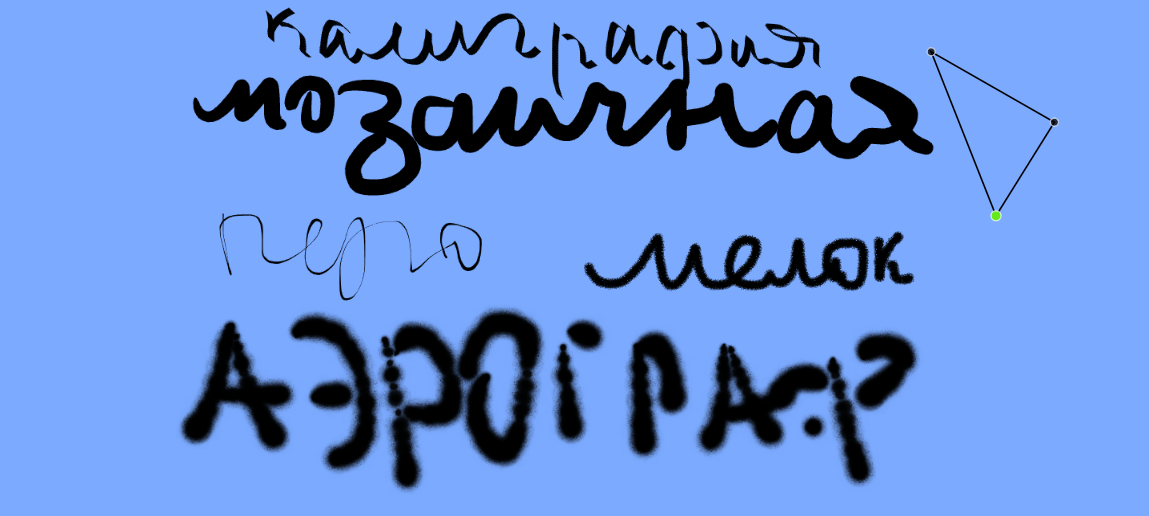 калиграфия
мозаичная
перо мелок
АЭРОГРАФ